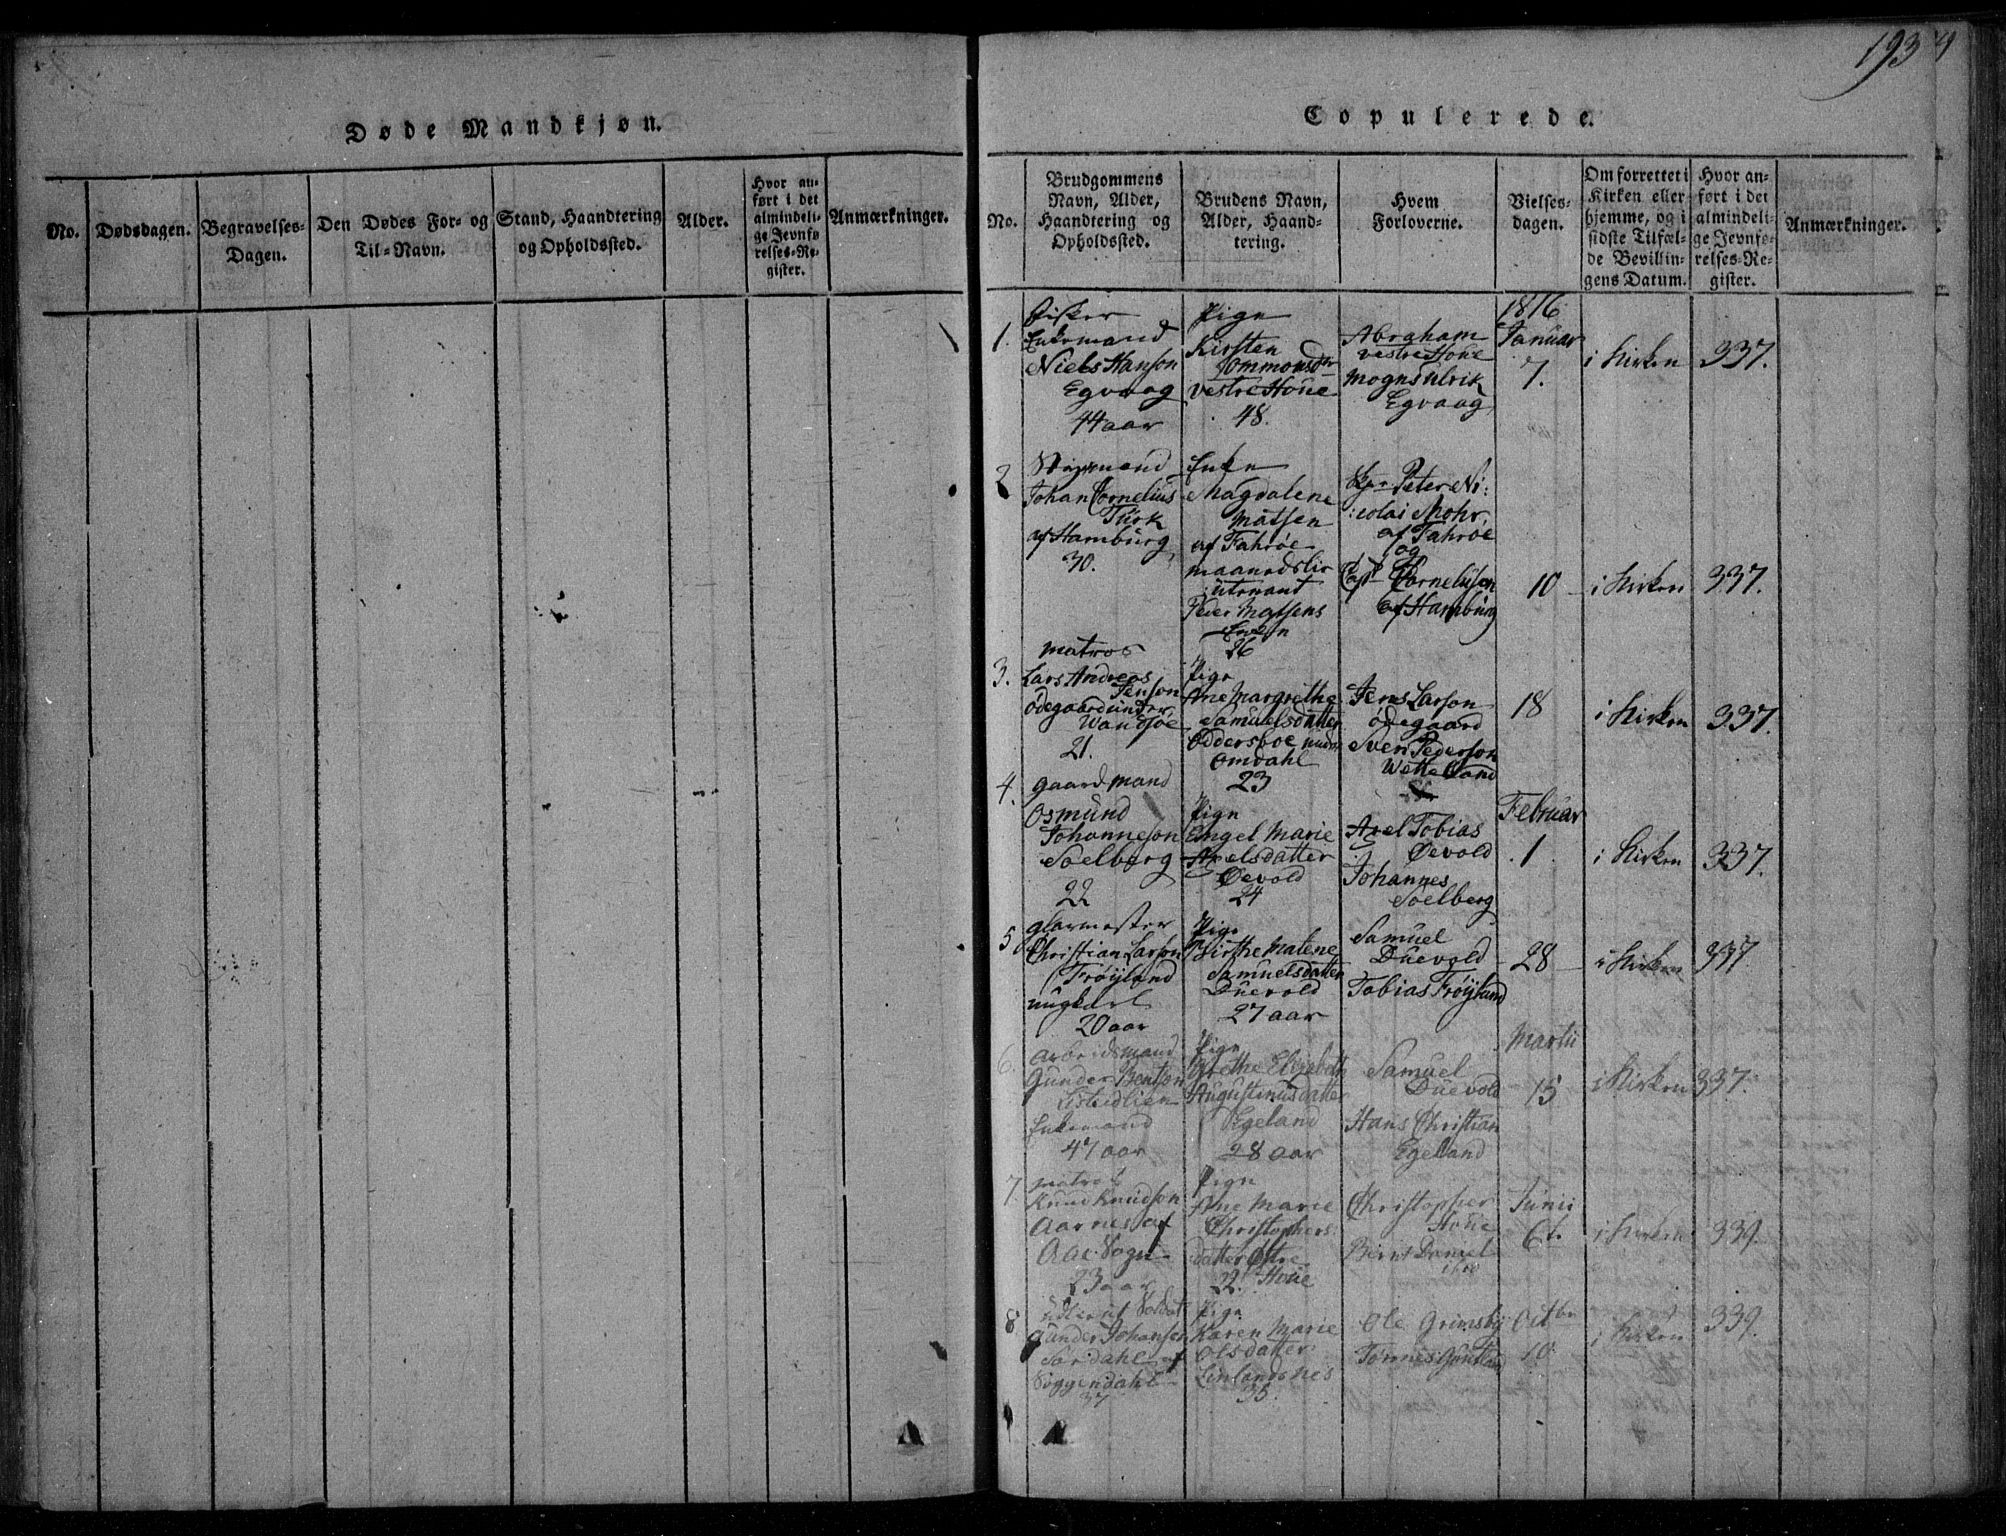 193
Døde Mandkjøn.
No.
Dødsdagen.
Begravelses-
Dagen.
Den Dødes For- og
Til-Navn.
Stand, Haandtering
og Opholdssted.
Alder.
Hvor an-
ført i det
almindeli-
ge Jevnfø-
relses-Re-
gister.
Anmærkninger.
Copulerede.
No.
Brudgommens
Navn, Alder,
Haandtering og
Opholdssted.
Brudens Navn,
Alder, Haand-
tering.
Hvem
Forloverne.
Vielses-
dagen.
Om forrettet i
Kirken eller
hjemme, og i
sidste Tilfæl-
de Bevillin-
gens Datum.
Hvor an-
ført i det
almindeli-
ge Jevnfø-
relses-Re-
gister.
Anmærkninger.
1.
Fisker
Enkemand
Niels Hanson
Egvaag
44 aar
Pige
Kirsten
Tommonsdtr
vestre Houe
48.
Abraham
vestre Houe
Mogns Ulrik
Egvaag
1816
Januar
7.
i Kirken
337.
2
Johan Cornelius
Türk
af Hamburg
30.
Enke
Magdalene
Matsen
af Fahrøe
Peder Matsens
Enke
26
Peter Ni:
:colai Mohr,
af Fahrøe
og
Capt Cornelüsen
af Hambürg
10
i Kirken
337.
3.
Matros
Lars Andreas
Jenson
Ødegaard under
Wandsøe
21.
Pige
Ane Margrethe
Samuelsdatter
Oddersboe under
Omdahl
23
Jens Larson
Ødegaard
Sven Pederson
Wetteland
18
i Kirken
337.
4.
gaardmand
Osmünd
Johanneson
Soelberg
22
Pige
Engel Marie
Axelsdatter
Øevold
24
Axel Tobias
Øevold
Johannes
Soelberg
Februar
1.
i Kirken
337.
5
glarmester
Christian Larson
Frøyland
ungkarl
20 aar
Pige
Birthe Malene
Samuelsdatter
Duevold
27 aar
Samuel
Duevold
Tobias Frøyland
28
i Kirken
337
6.
arbeidsmand
Gunder Bentson
Enkemand
47 aar
Pige
Grethe Elizabeth
Augustinusdatter
Egeland
28 aar
Samuel
Duevold
Hans Christian
Egeland
Martii
15
i Kirken
337.
7.
matros
Knud Knudson
Aarnes af
Aae Sogn
23 aar
Pige
Ane Marie
Christophers:
datter Østre
Houe
22.
Christopher
Houe
Bernt Daniel
Junii
6te
i Kirken
339.
8
Soldat
Gunder Johansen
Sørdahl af
Soggendahl
37
Pige
Karen Marie
Olsdatter
Linlandsnes
35.
Ole Grimsby
Octbr
10
i Kirken
339.